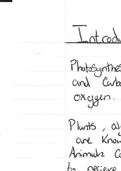 Introd
Photosynthes
and Carb
oxygen.
Plants, al
are Know
Animals Co
to receive